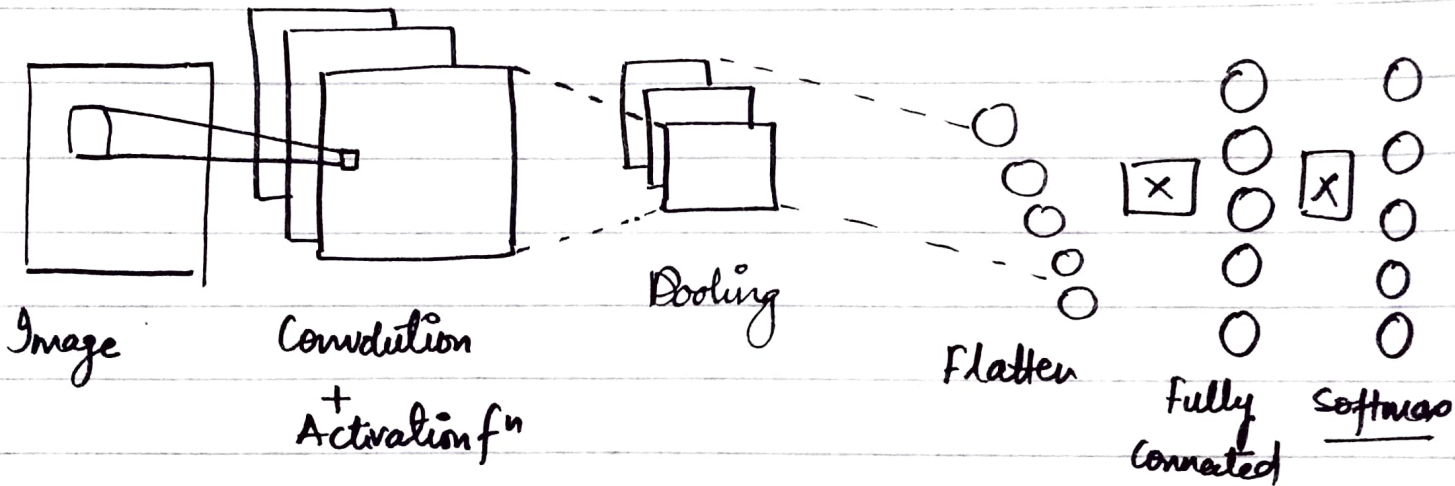 Image
Convolution
+
Activation fⁿ
Pooling
Flatten
X
Fully
Connected
X
Softmax